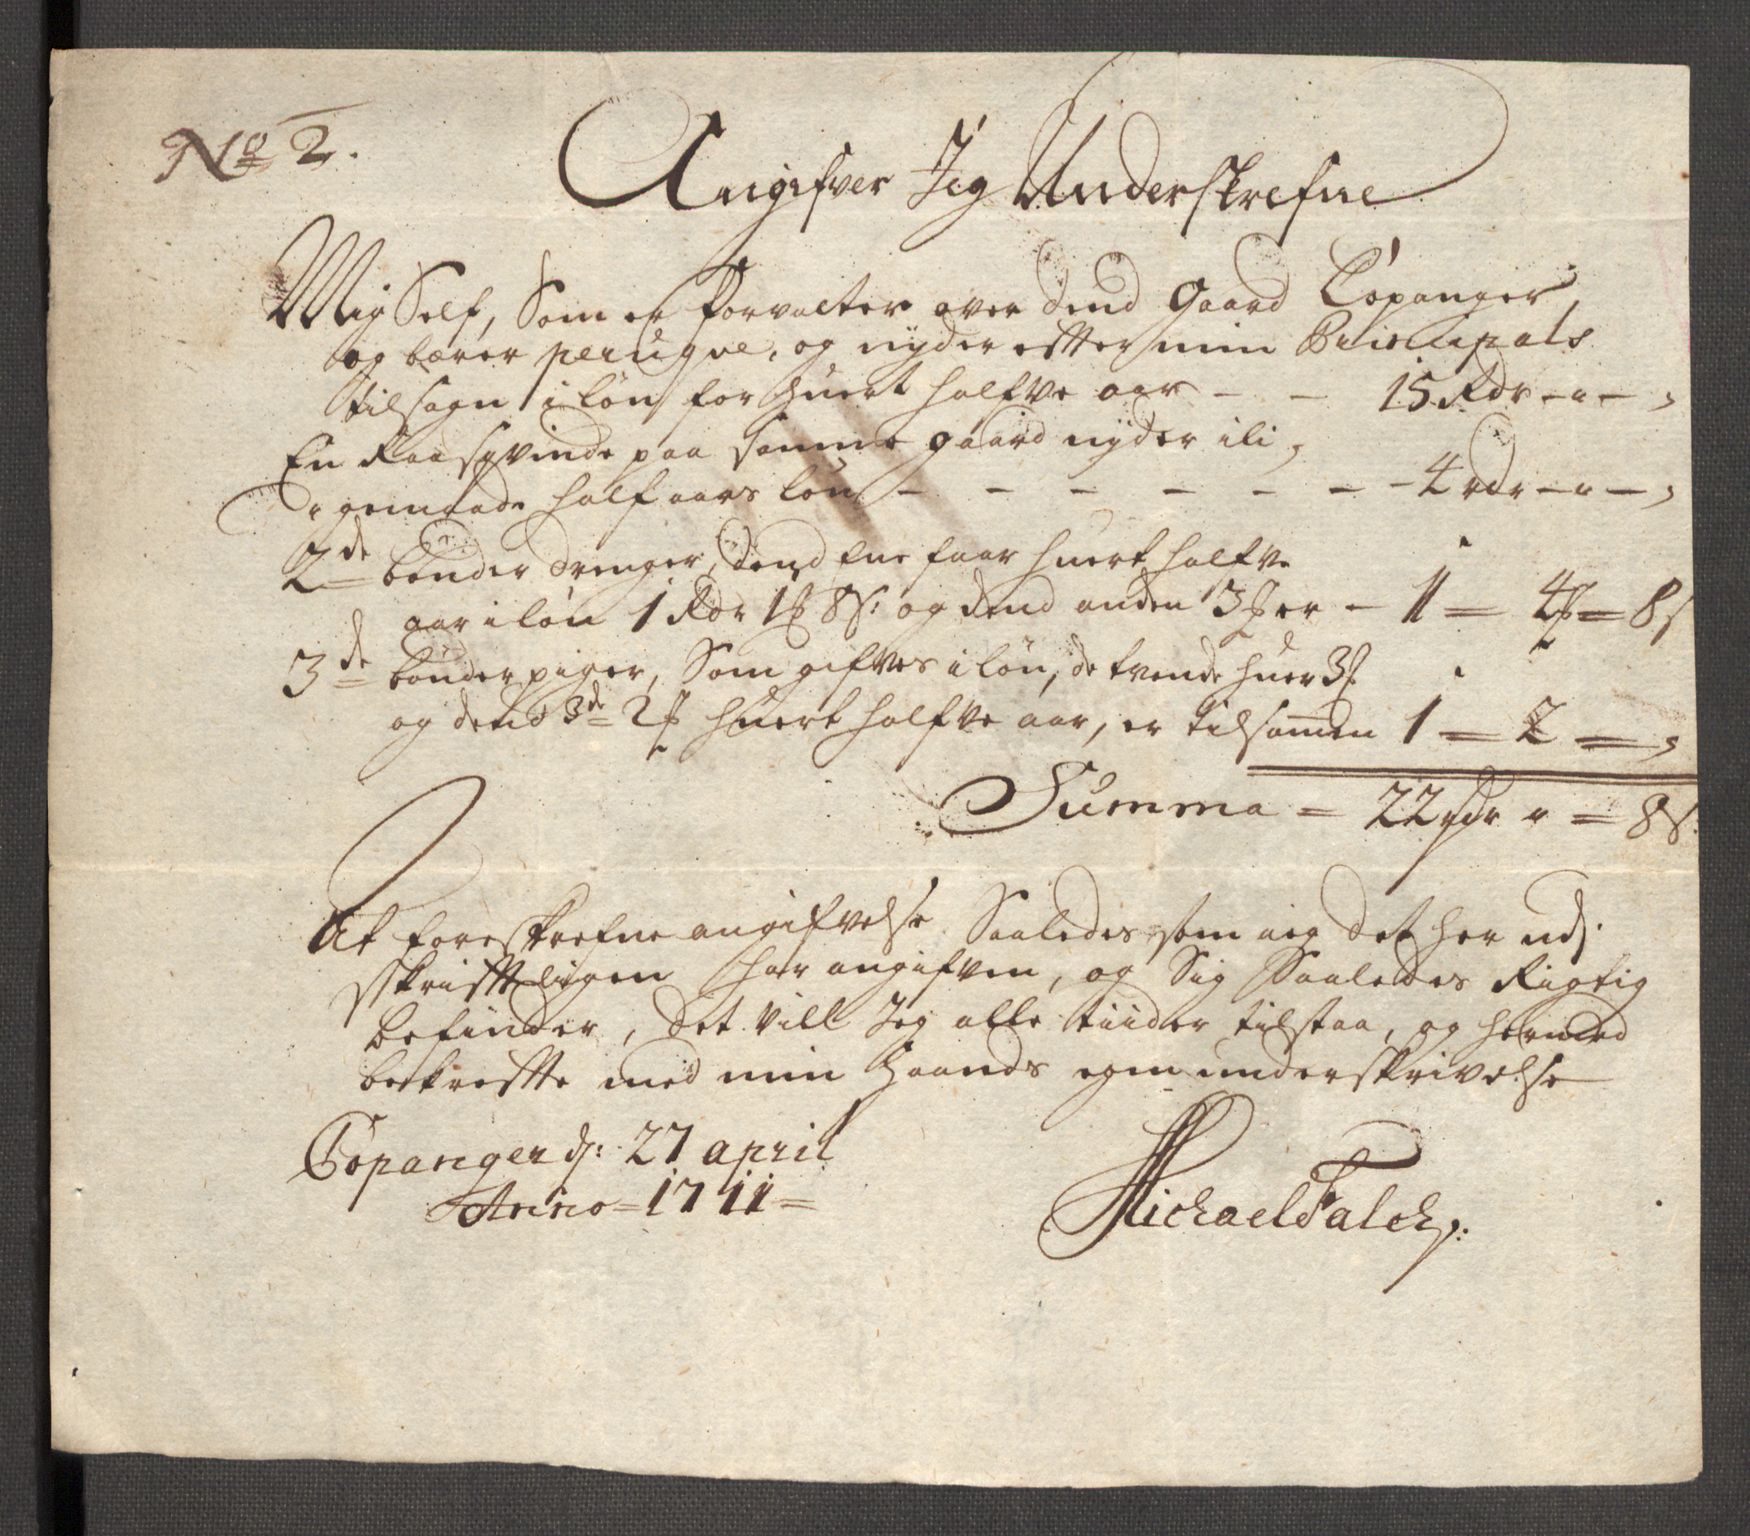 No 2.
Angifver Jeg Underskrefne
Mig Self, Som er Forvalter over dend Gaard Copanger,
og bærer peruqve, og nyder effter min Principals
tilsagn i løn for huert halfve aar - - 15 Rdr - " - ,
En Raasqvinde paa samme gaard nyder ili,
gemaade half aars løn - - - - - - - 4 rdr - " - ,
2de bønder drenger, dend Ene faar huert halfve
aar i løn 1 Rdr 1 ß 8 s: og dend anden 3 ß er - 1 = 4 ß = 8 s
3de bønder piger, Som gifves i løn, de tvende huer 3 ß
og dend 3de 2 ß huert halfve aar, er tilsamen 1 = 2 = ,
Summa = 22 rdr " = 8 s.
At foreskrefne angifvelse Saaledes som ieg det her ud.
skrifftligen har angifven, og Sig Saaledes Rigtig
befinder, det vill Jeg alle tiider tilstaa, og hermed
bekreffte med min Haands egen underskrivelse
Copanger d: 27 april
Anno = 1711 =
Michael Falch: